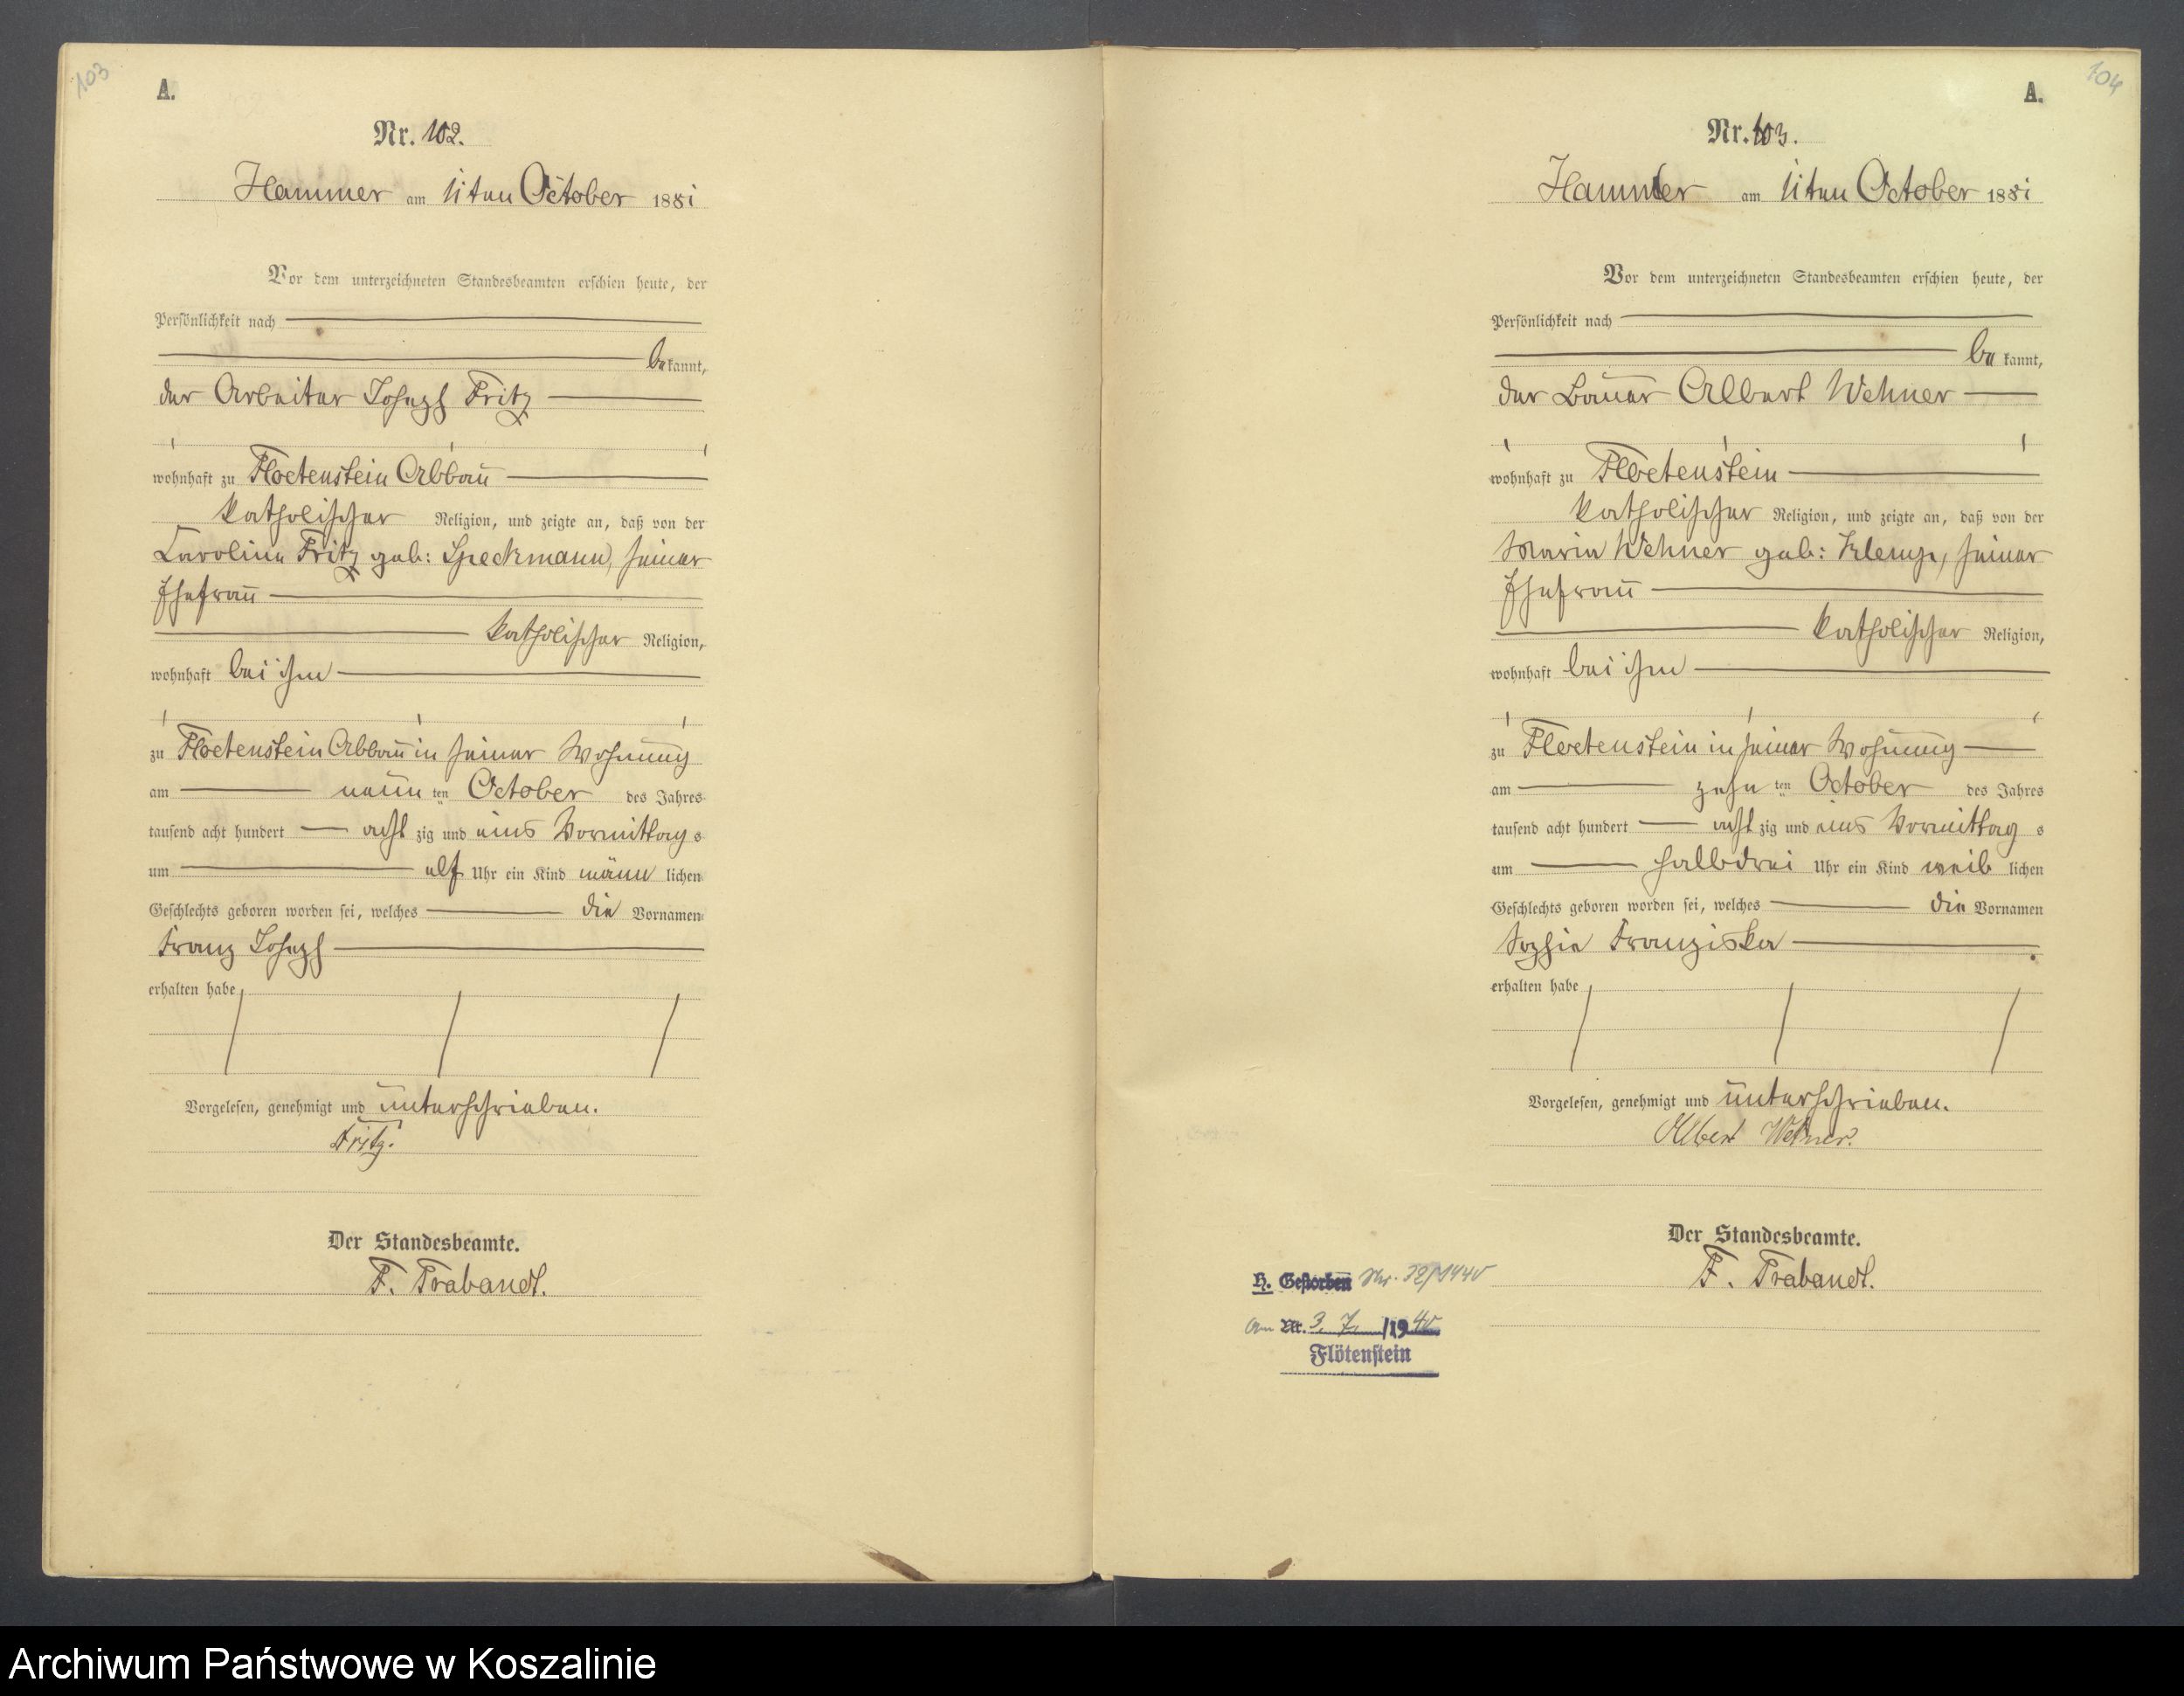 103
A.
Nr. 102.
Hammer am 11ten October 1881
Vor dem unterzeichneten Standesbeamten erschien heute, der
Persönlichkeit nach
bekannt,
der Arbeiter Joseph Fritz
wohnhaft zu Floetenstein Abbau
katholischer Religion, und zeigte an, daß von der
Caroline Fritz geb: Speckmann, seiner
Ehefrau
katholischer Religion,
wohnhaft bei ihm
zu Floetenstein Abbau in seiner Wohnung
am neun ten October des Jahres
tausend acht hundert acht zig und eins Vormittag s
um elf Uhr ein Kind männ lichen
Geschlechts geboren worden sei, welches die Vornamen
Franz Joseph
erhalten habe
Vorgelesen, genehmigt und unterschrieben.
Fritz.
Der Standesbeamte.
F. Trabandt.
104
A.
Nr. 103.
Hammer am 11ten October 1881
Vor dem unterzeichneten Standesbeamten erschien heute, der
Persönlichkeit nach
be kannt,
der Bauer Albert Wehner
wohnhaft zu Floetenstein
katholischer Religion, und zeigte an, daß von der
Maria Wehner geb: Klemp, seiner
Ehefrau
katholischer Religion,
wohnhaft bei ihm
zu Floetenstein in seiner Wohnung
am zehn ten October des Jahres
tausend acht hundert acht zig und eins Vormittag s
um halbdrei Uhr ein Kind weib lichen
Geschlechts geboren worden sei, welches die Vornamen
Sophie Franziska
erhalten habe
Vorgelesen, genehmigt und unterschrieben.
Albert Wehner.
Der Standesbeamte.
F. Trabandt.
H. Gestorben Nr. /1940
am Nr. 3. 7. /1940
Flötenstein
Archiwum Państwowe w Koszalinie